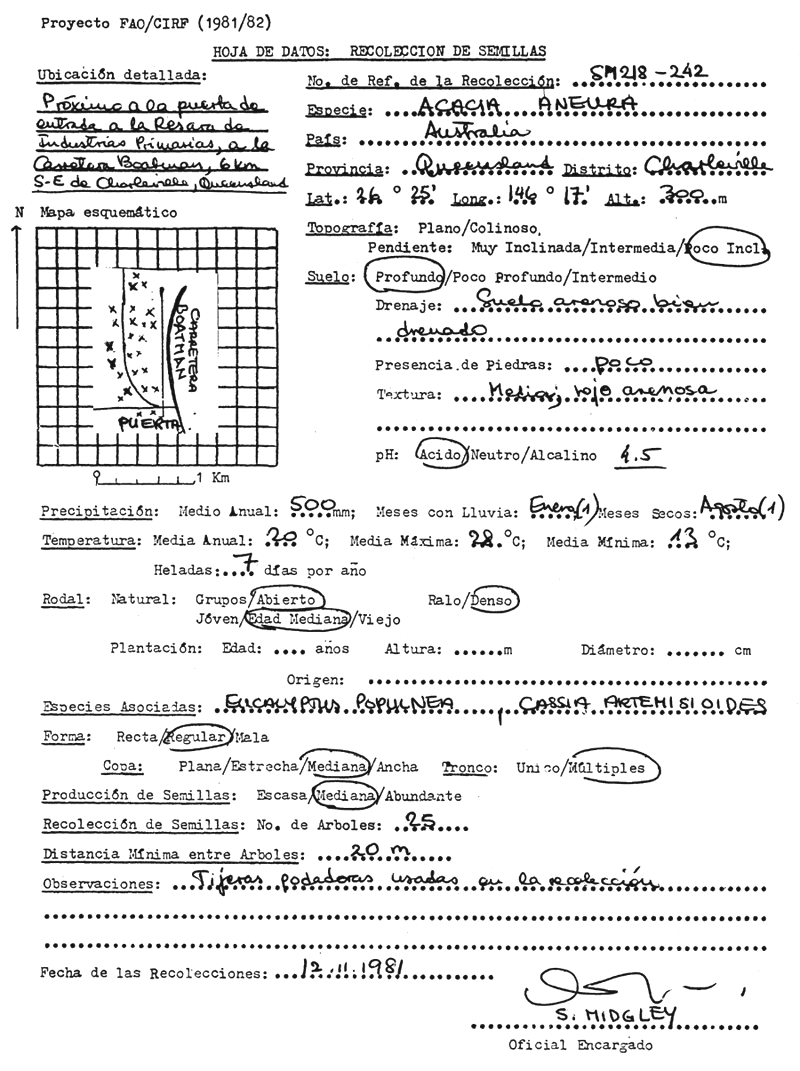 Proyecto FAO/CIRF (1981/82)
HOJA DE DATOS: RECOLECCION DE SEMILLAS
Ubicación detallada:
Próximo a la puerta de
entrada a la Resava de
Industrias Primarias, a la
Carretera Boatman, 6 km
S-E de Charleville, Queensland
No. de Ref. de la Recolección: SM218-242
Especie: ACACIA ANEURA
País: Australia
Provincia: Queensland Distrito: Charleville
Lat.: 26 ° 25' Long.: 146 ° 17' Alt.: 300 m
N Mapa esquemático
CARRETERA
BOATMAN
PUERTA
0 1 Km
Topografía: Plano/Colinoso.
Pendiente: Muy Inclinada/Intermedia/Poco Incl.
Suelo: Profundo/Poco Profundo/Intermedio
Drenaje: Suelo arenoso bien
drenado
Presencia de Piedras: poco
Textura: Media; rojo arenosa
pH: Acido/Neutro/Alcalino 4.5
Precipitación: Medio Anual: 500 mm; Meses con Lluvia: Enero(1) Meses Secos: Agosto(1)
Temperatura: Media Anual: 20 °C; Media Máxima: 28 °C; Media Mínima: 13 °C;
Heladas: 7 días por año
Rodal: Natural: Grupos/Abierto Ralo/Denso
Jóven/Edad Mediana/Viejo
Plantación: Edad: .... años Altura: ......m Diámetro: ....... cm
Origen:
Especies Asociadas: EUCALYPTUS POPULNEA, CASSIA ARTEMISIOIDES
Forma: Recta/Regular/Mala
Copa: Plana/Estrecha/Mediana/Ancha Tronco: Unico/Múltiples
Producción de Semillas: Escasa/Mediana/Abundante
Recolección de Semillas: No. de Arboles: 25
Distancia Mínima entre Arboles: 20 m
Observaciones: Tijeras podadoras usadas en la recolección
Fecha de las Recolecciones: 12.11.1981
S. MIDGLEY
Oficial Encargado